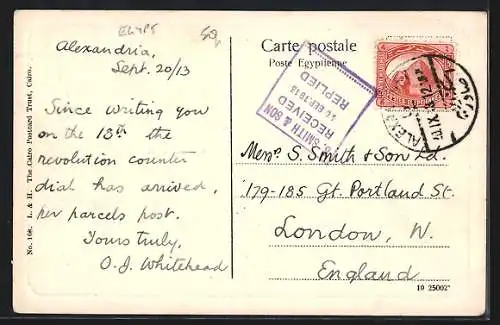 EGYPT
Alexandria,
Sept. 20/13
Since writing you
on the 13th the
revolution counter
dial has arrived,
per parcels post.
Yours truly,
O. J. Whitehead
No. 108. L. & H. The Cairo Postcard Trust, Cairo.
Carte postale
Poste Egyptienne
SMITH & SON
RECEIVED
26 SEP. 1913
REPLIED
ALEX
Messrs S. Smith & Son Ld.
179-185 Gt. Portland St.
London, W.
England
19 25002*